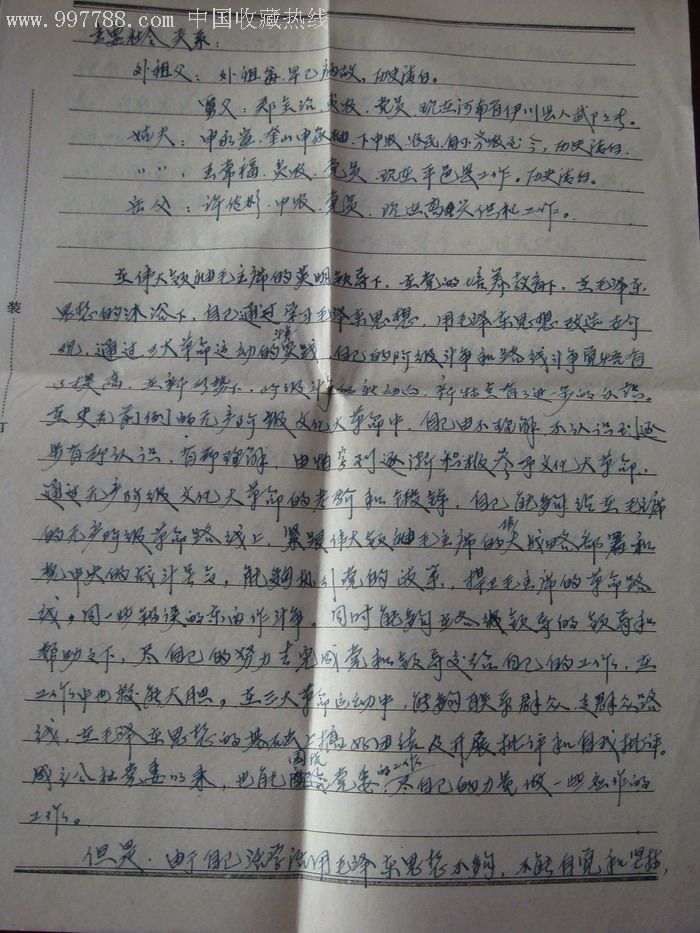 www.997788.com 中国收藏热线
主要社会关系：
外祖父：外祖母.早已病故，历史清白。
舅父：郑 治，贫农，党员，现在河南省伊川县人武 。
姑夫：申永 ，釜山申家 ，下中农，农民，自小务农至今，历史清白。
〃〃：王常福，贫农，党员，现在平邑县工作。历史清白。
岳父：许传彬，中农，党员，现在高 供 工作。
在伟大领袖毛主席的英明领导下，在党的培养教育下，在毛泽东
思想的沐浴下，自己通过学习毛泽东思想，用毛泽东思想改造世界
观，通过三大革命运动的实践，自己的阶级斗争和路线斗争觉悟有
了提高，在新形势下，阶级斗争的新动向，新特点有了进一步的认识。
在史无前例的无产阶级文化大革命中，自己由不理解不认识到逐
步有所认识，有所理解，由怕字到逐渐积极参予文化大革命，
通过无产阶级文化大革命的考验和锻炼，自己能够站在毛主席
的无产阶级革命路线上，紧跟伟大领袖毛主席的伟大战略部署和
党中央的战斗号令，能够执行党的政策，捍卫毛主席的革命路
线，同一些错误的东西作斗争。同时能够在各级领导的领导和
帮助之下，尽自己的努力去完成党和领导交给自己的工作，在
工作中也较能大胆。在三大革命运动中，能够联系群众，走群众路
线，在毛泽东思想的基础上搞好团结及开展批评和自我批评。
成立公社党委以来，也能围绕党委的工作尽自己的力量做一些应作的
工作。
但是，由于自己活学活用毛泽东思想不够，不能自觉和坚持，
装
订